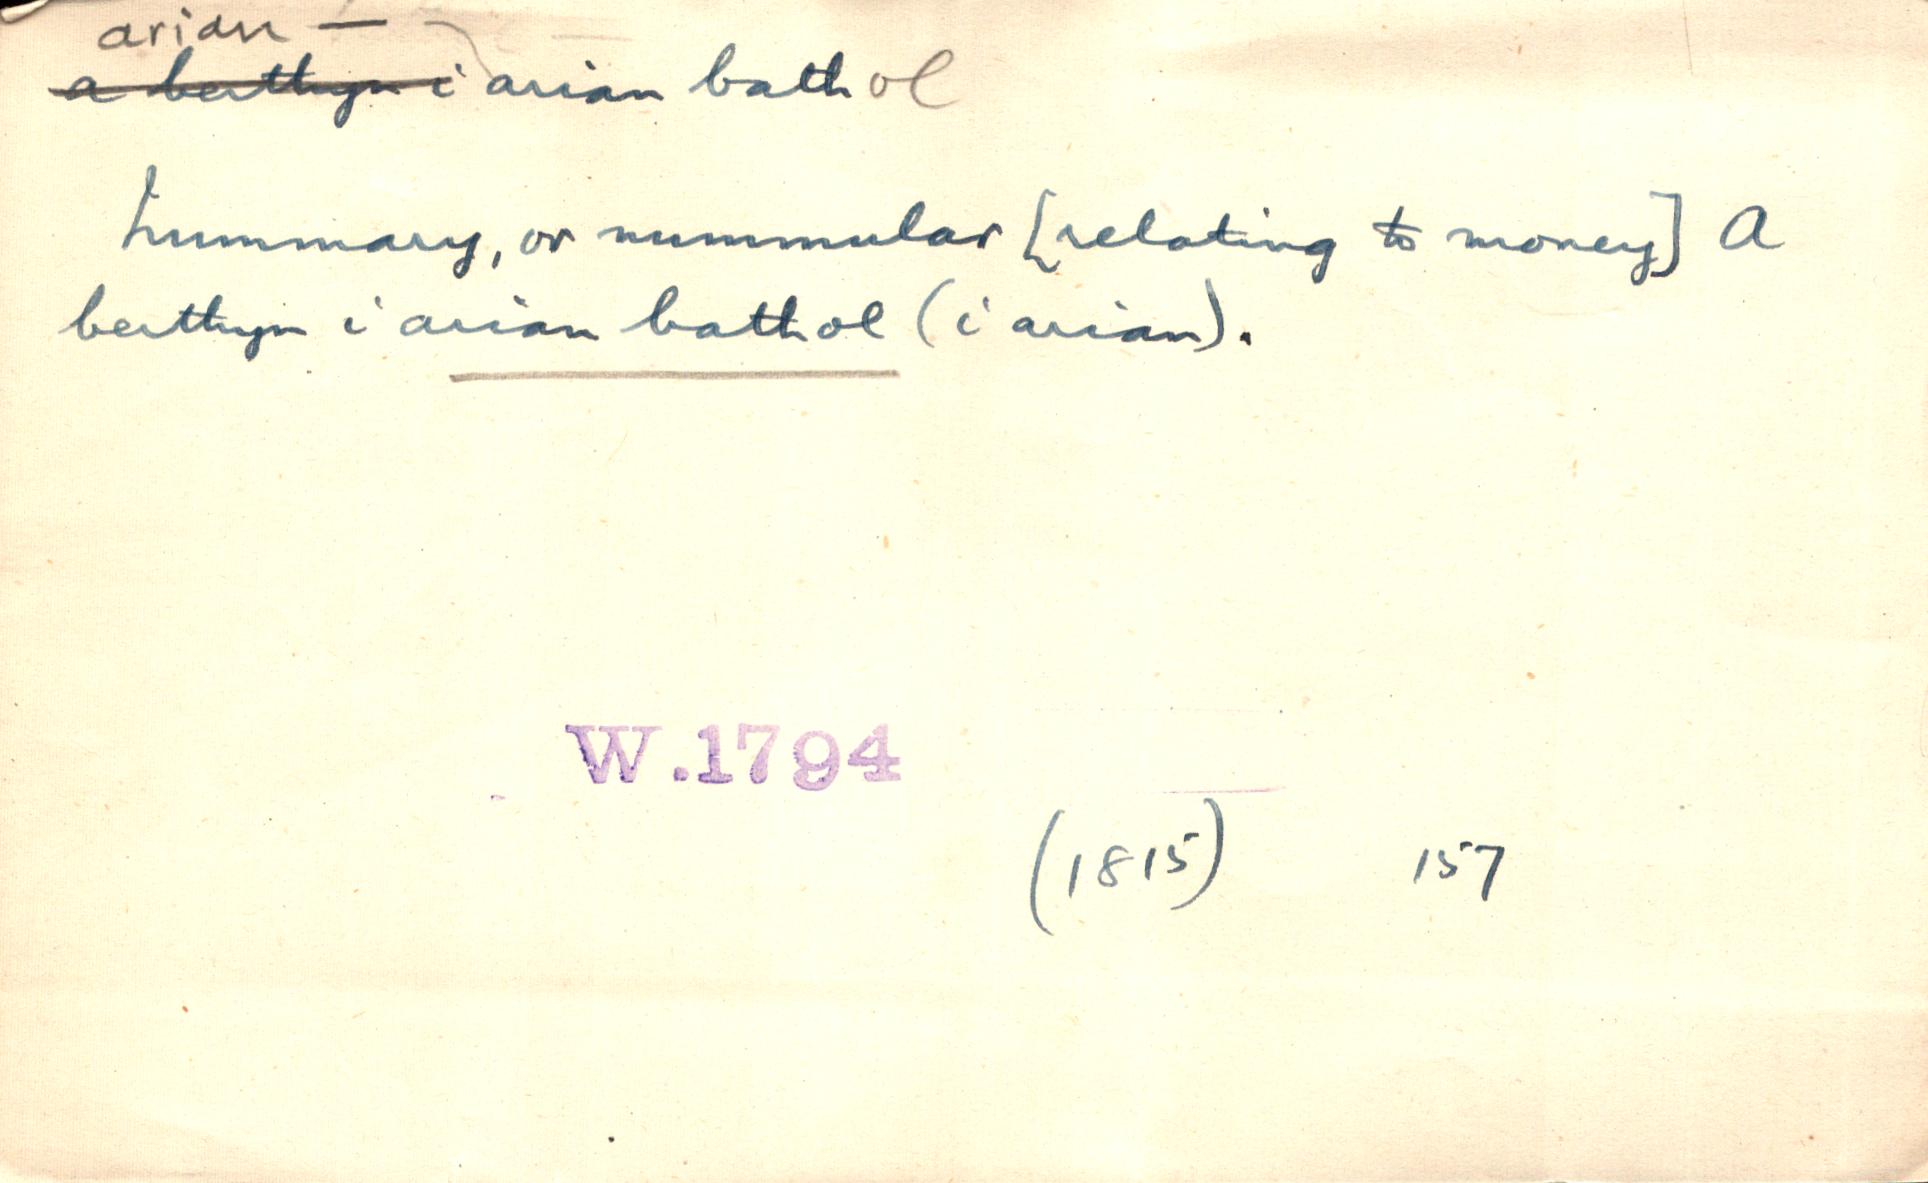 arian —
a berthyn i arian bathol
Nummary, or nummular [relating to money] A
berthyn i arian bathol (i arian).
W.1794
(1815) 157